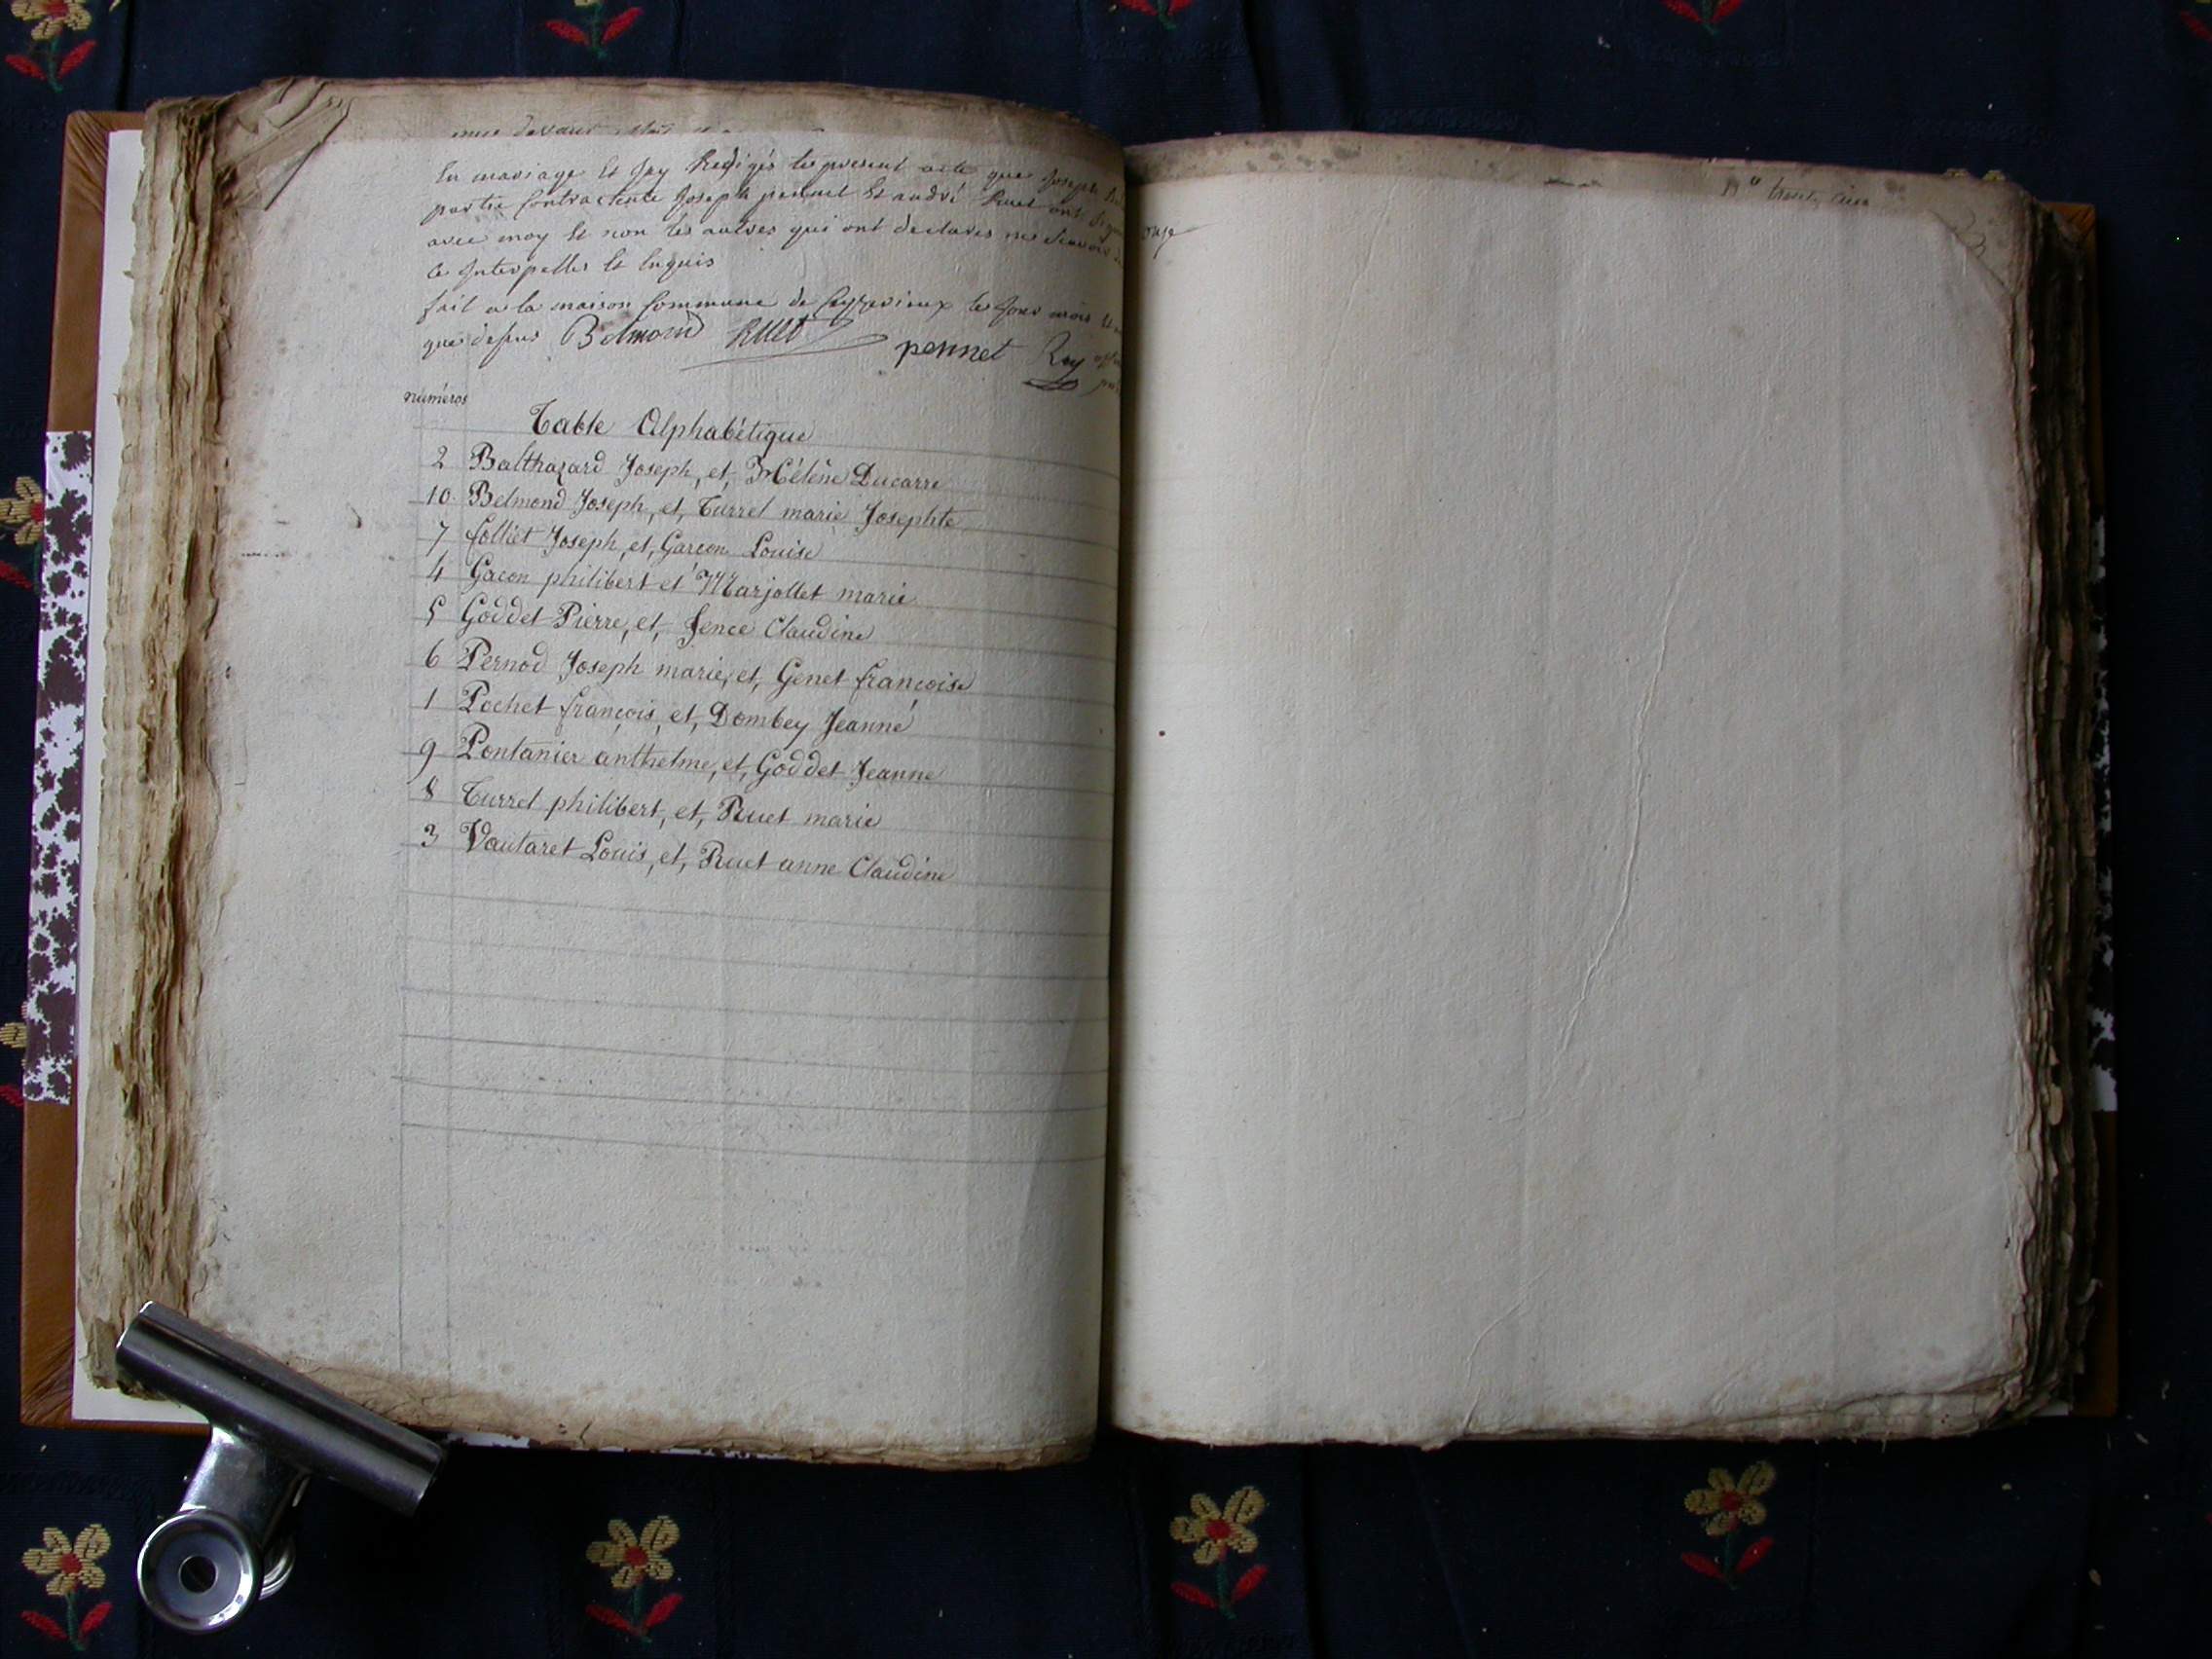 En mariage Et Jay Redigés le present acte que Joseph
partie Contractente Joseph pennet Et andré Ruet ont signé
avec moy Et non les autres qui ont declarés ne Scavoir
ce Interpellés Et Enquis
fait a la maison Commune de Ceyzerieux les Jour mois Et
que desus Belmond Ruet pennet Rey
numéros
Table Alphabétique
2 Balthazard Joseph, et, Mélène Ducarre
10. Belmond Joseph, et, Turrel marie Josephte
7 folliet Joseph, et, Garcon Louise
4 Gacon philibert et Marjollet marie
5 Goddet Pierre, et, Jence Claudine
6 Pernod Joseph marie, et, Genet françoise
1 Pochet françois, et, Dombey Jeanne
9 Pontanier anthelme, et, Goddet Jeanne
8 Turrel philibert, et, Ruet marie
3 Vautaret Louis, et, Ruet anne Claudine